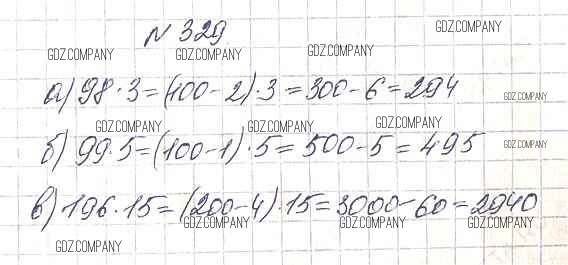 GDZ.COMPANY
№ 329
GDZ.COMPANY GDZ.COMPANY GDZ.COMPANY
а) 98 · 3 = (100 - 2) · 3 = 300 - 6 = 294
GDZ.COMPANY
GDZ.COMPANY GDZ.COMPANY GDZ.COMPANY
б) 99 · 5 = (100 - 1) · 5 = 500 - 5 = 495
GDZ.COMPANY
в) 196 · 15 = (200 - 4) · 15 = 3000 - 60 = 2940
GDZ.COMPANY GDZ.COMPANY GDZ.COMPANY
GDZ.COMPANY